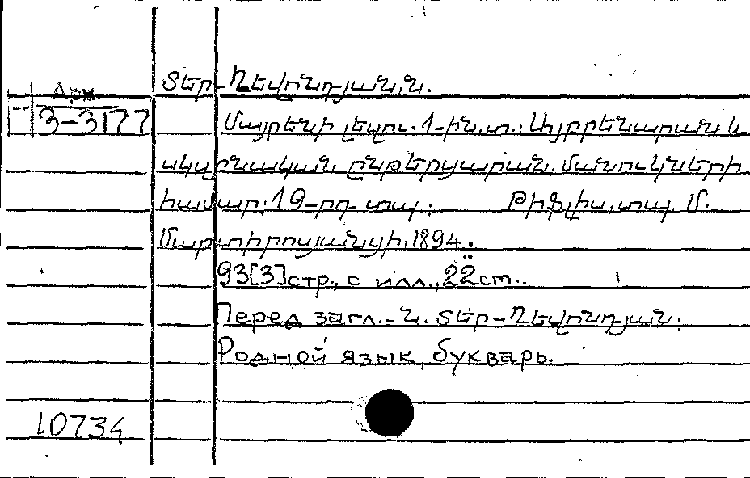 Арм.
Տեր-Ղևոնդյան, Ն.
3-3177
Մայրենի լեզու. 1-ին տ. Այբբենարան և
սկզբնական ընթերցարան մանուկների
համար. 19-րդ տպ. Թիֆլիս, տպ. Մ.
Մարտիրոսյանցի, 1894.
93[3]стр., с илл., 22 см.
Перед загл.-Ն. Տեր-Ղևոնդյան.
Родной язык, букварь.
10734